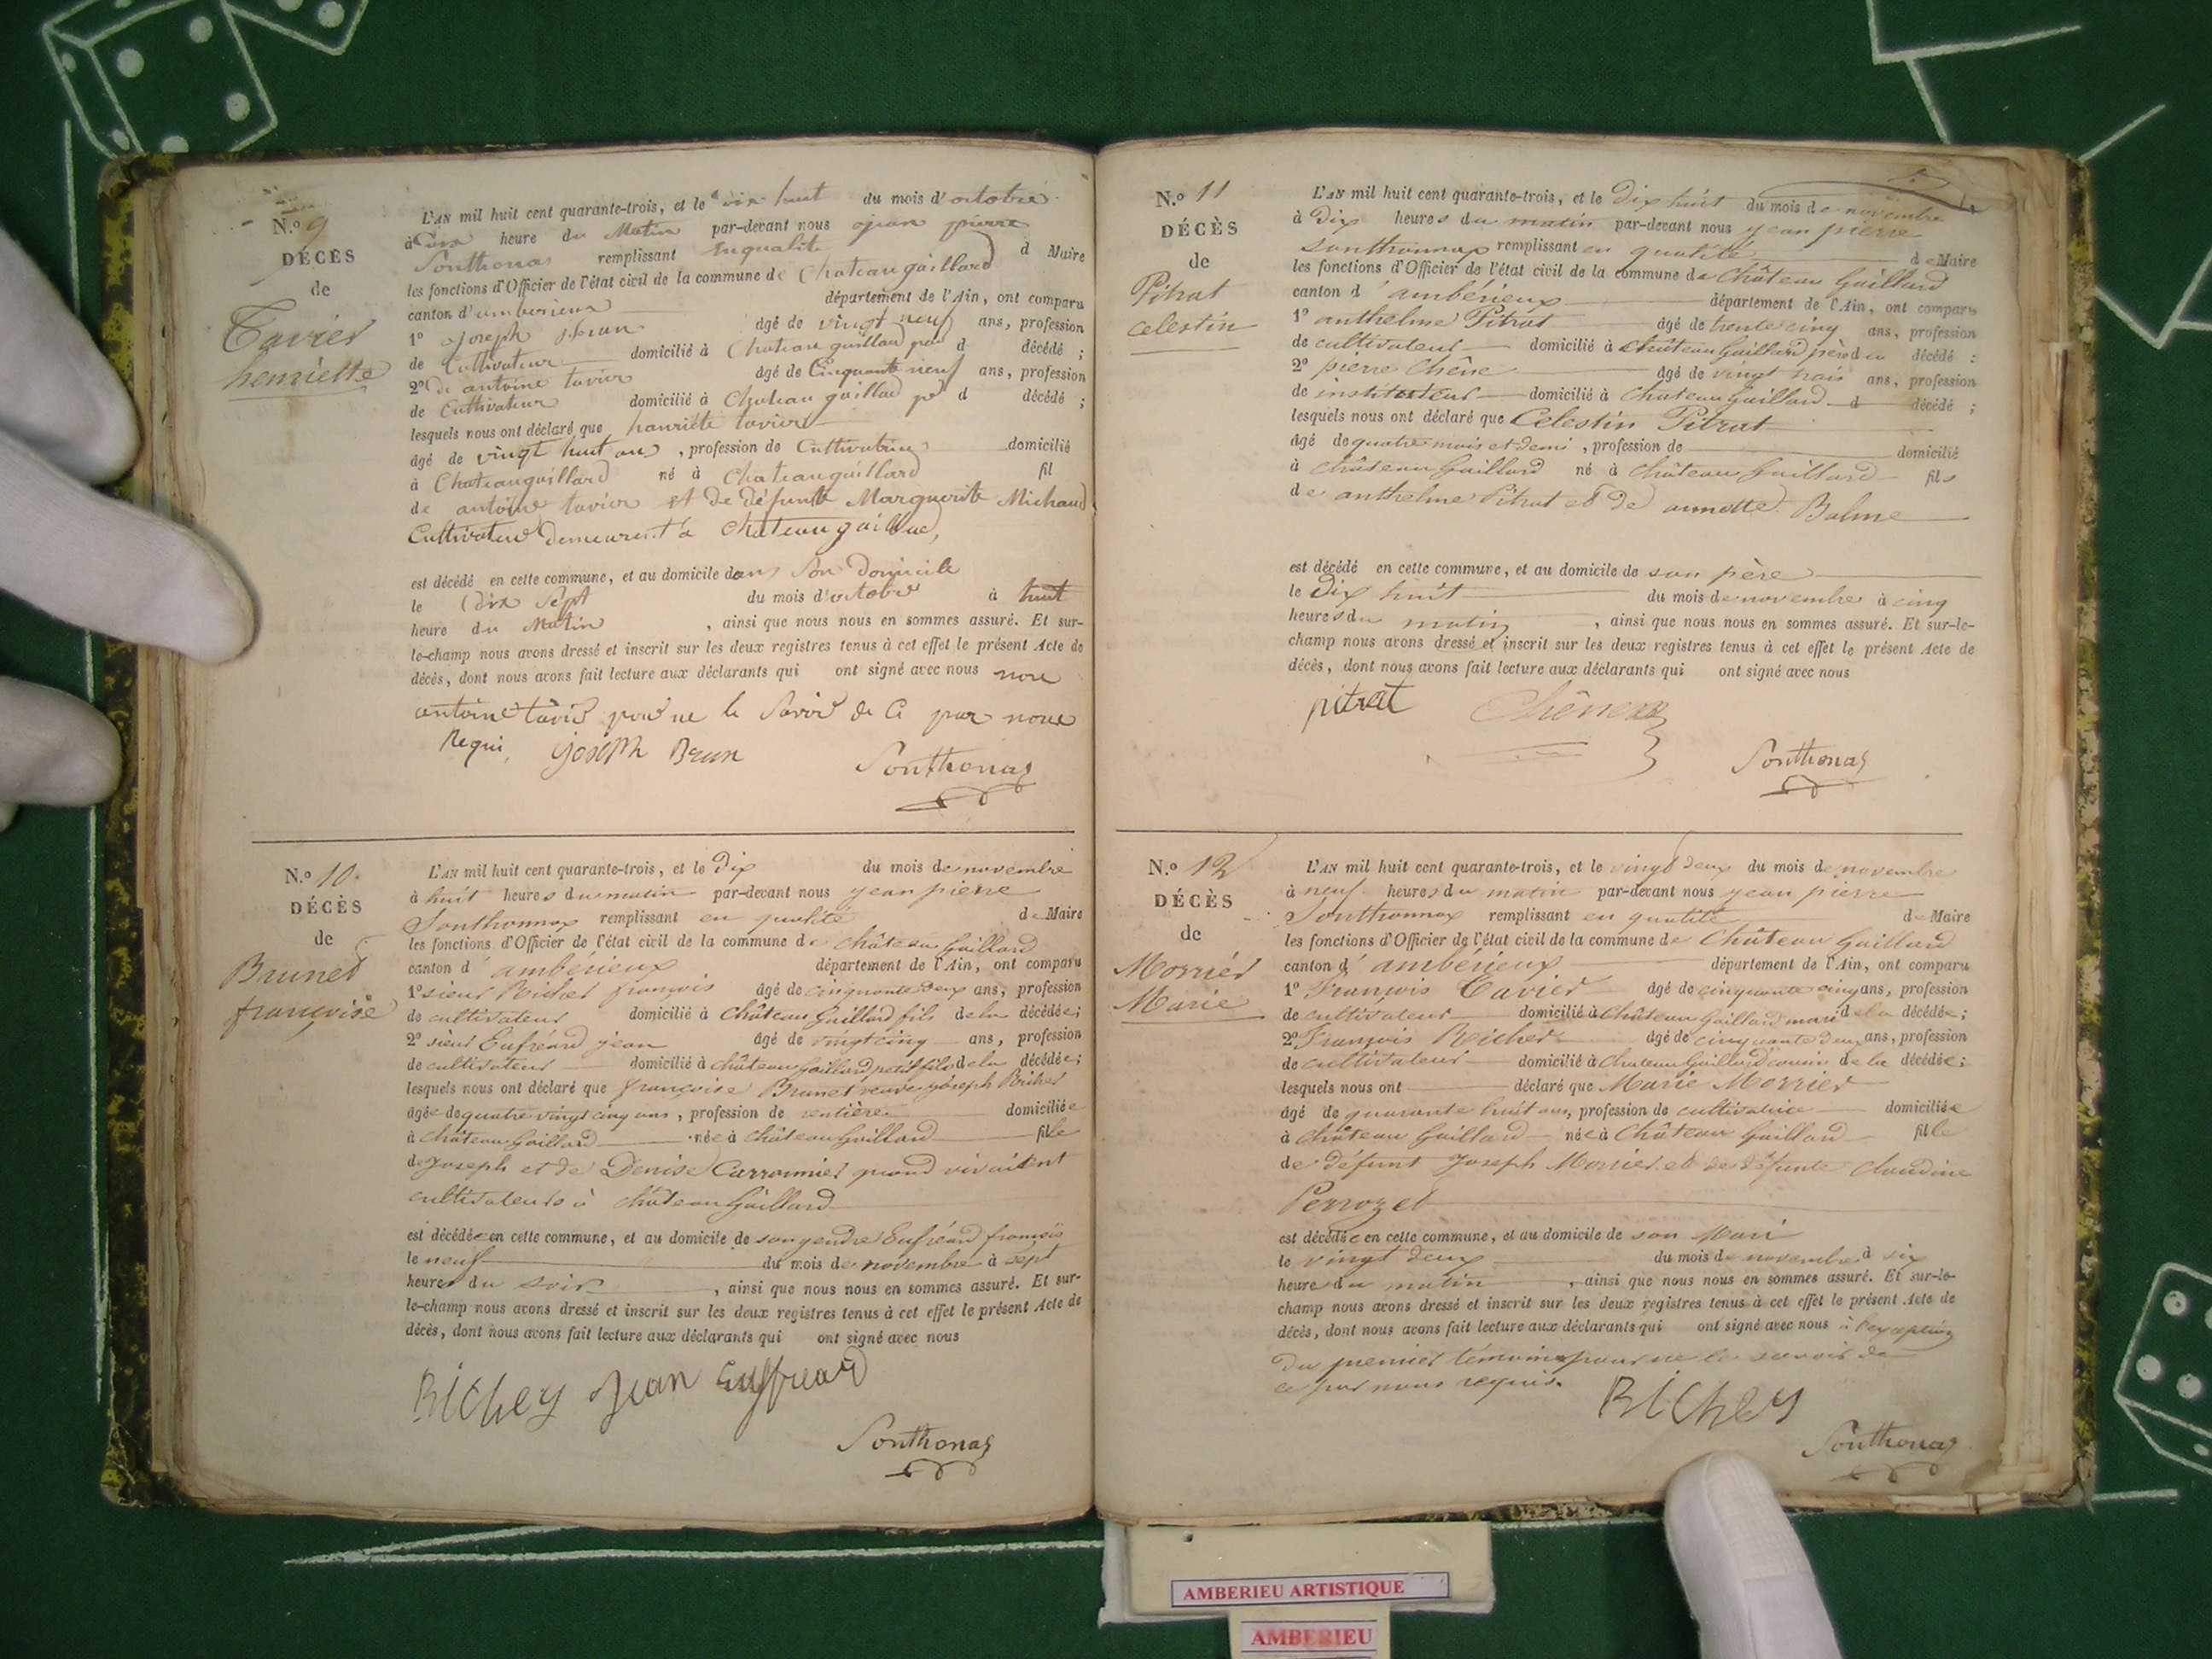 N.o 9
DÉCÈS
de
Tavier
henriette
L'AN mil huit cent quarante-trois, et le dix huit du mois d'octobre
à dix heure du Matin par-devant nous jean pierre
Sonthonas remplissant en qualité d Maire
les fonctions d'Officier de l'état civil de la commune de Chateaugaillard
canton d'amberieux département de l'Ain, ont comparu
1o joseph brun âgé de vingt neuf ans, profession
de Cultivateur domicilié à Chateau gaillard d décédé ;
2o antoine tavier âgé de Cinquante neuf ans, profession
de Cultivateur domicilié à Chateau gaillard d décédé ;
lesquels nous ont déclaré que henriete tavier
âgé de vingt huit ans, profession de Cultivatrice domicilié
à Chateaugaillard né à Chateaugaillard fil
de antoine tavier et de défunte Marguerite Michaud
Cultivateur demeurent à Chateaugaillard,
est décédé en cette commune, et au domicile dans Son Domicile
le dix sept du mois d'octobre à huit
heure du Matin, ainsi que nous nous en sommes assuré. Et sur-
le-champ nous avons dressé et inscrit sur les deux registres tenus à cet effet le présent Acte de
décès, dont nous avons fait lecture aux déclarants qui ont signé avec nous non
antoine tavier pour ne le Savoir de Ce par nous
Requi, joseph Brun Sonthonas
N.o 10.
DÉCÈS
de
Brunet
françoise
L'AN mil huit cent quarante-trois, et le Dix du mois de novembre
à huit heures du matin par-devant nous jean pierre
Sonthonnax remplissant en qualité de Maire
les fonctions d'Officier de l'état civil de la commune de château Gaillard
canton d'ambérieux département de l'Ain, ont comparu
1o sieur Richer françois âgé de cinquante deux ans, profession
de cultivateur domicilié à Château Gaillard fils de la décédée;
2o sieur Eufréard jean âgé de vingt cinq ans, profession
de cultivateur domicilié à château Gaillard petit fils de la décédée;
lesquels nous ont déclaré que françoise Brunet veuve joseph Richer
âgée de quatre vingt cinq ans, profession de rentière domiciliée
à château Gaillard née à château Gaillard fille
de joseph et de Denise Carronnier quand vivaitent
cultivateurs à château Gaillard
est décédée en cette commune, et au domicile de son gendre Eufréard françois
le neuf du mois de novembre à sept
heures du soir, ainsi que nous nous en sommes assuré. Et sur-
le-champ nous avons dressé et inscrit sur les deux registres tenus à cet effet le présent Acte de
décès, dont nous avons fait lecture aux déclarants qui ont signé avec nous
Richer jean Euffreard
Sonthonas
N.o 11
DÉCÈS
de
Pitrat
celestin
L'AN mil huit cent quarante-trois, et le Dix huit du mois de novembre
à Dix heures du matin par-devant nous jean pierre
Sonthonnax remplissant en qualité de Maire
les fonctions d'Officier de l'état civil de la commune de Château Gaillard
canton d'ambérieux département de l'Ain, ont comparu
1o anthelme Pitrat âgé de trente cinq ans, profession
de cultivateur domicilié à château Gaillard père du décédé ;
2o pierre Chêne âgé de vingt trois ans, profession
de instituteur domicilié à château Gaillard d décédé ;
lesquels nous ont déclaré que Celestin Pitrat
âgé de quatre mois et demi, profession de domicilié
à château Gaillard né à château Gaillard fils
de anthelme Pitrat et de annette Balme
est décédé en cette commune, et au domicile de son père
le Dix huit du mois de novembre à cinq
heures du matin, ainsi que nous nous en sommes assuré. Et sur-le-
champ nous avons dressé et inscrit sur les deux registres tenus à cet effet le présent Acte de
décès, dont nous avons fait lecture aux déclarants qui ont signé avec nous
pitrat Chêne
Sonthonas
N.o 12
DÉCÈS
de
Morrier
Marie
L'AN mil huit cent quarante-trois, et le vingt deux du mois de novembre
à neuf heures du matin par-devant nous jean pierre
Sonthonnax remplissant en qualité de Maire
les fonctions d'Officier de l'état civil de la commune de Château Gaillard
canton d'ambérieux département de l'Ain, ont comparu
1o François Tavier âgé de cinquante cinq ans, profession
de cultivateur domicilié à château Gaillard mari de la décédée;
2o François Richer âgé de cinquante deux ans, profession
de cultivateur domicilié à château Gaillard cousin de la décédée;
lesquels nous ont déclaré que Marie Morrier
âgé de quarante huit ans, profession de cultivatrice domiciliée
à château Gaillard née à Château Gaillard fille
de défunt joseph Morrier et de défunte claudine
Perrozet
est décédée en cette commune, et au domicile de son Mari
le vingt deux du mois de novembre à six
heure du matin, ainsi que nous nous en sommes assuré. Et sur-le-
champ nous avons dressé et inscrit sur les deux registres tenus à cet effet le présent Acte de
décès, dont nous avons fait lecture aux déclarants qui ont signé avec nous à l'exception
du premier témoin pour ne le savoir de
ce par nous requis.
Richer
Sonthonas
AMBERIEU ARTISTIQUE
AMBERIEU